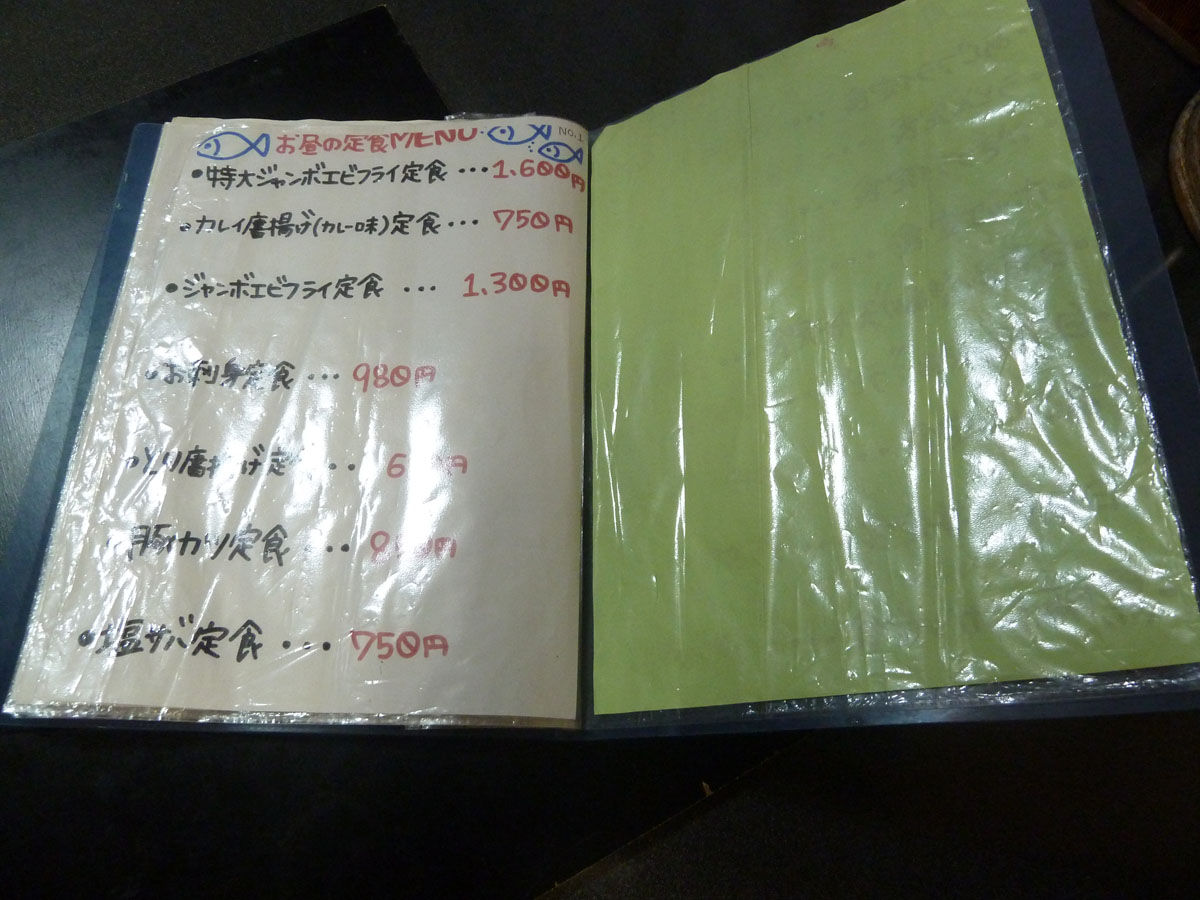 お昼の定食MENU. NO.1
•特大ジャンボエビフライ定食 ･･･1.600円
•カレイ唐揚げ(カレー味)定食 ･･･ 750円
•ジャンボエビフライ定食 ･･･ 1.300円
•お刺身定食 ･･･ 980円
•とり唐揚げ定
豚カツ定食 ･･･
•塩サバ定食 ･･･ 750円